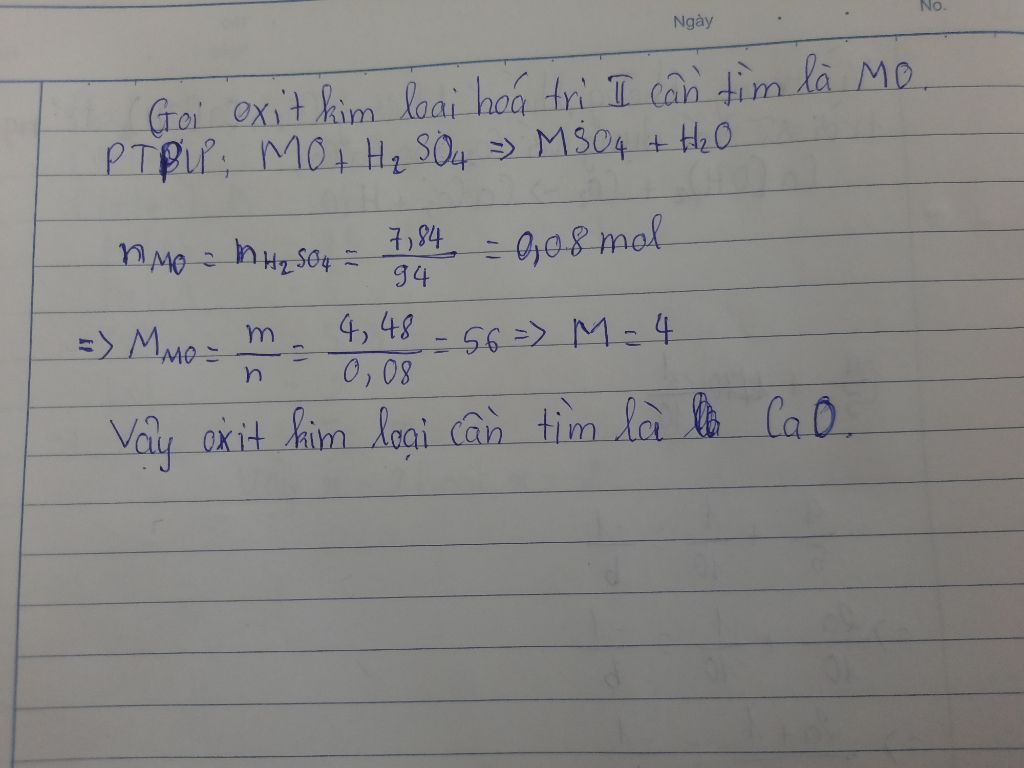 Ngày
No.
Gọi oxit kim loại hoá trị II cần tìm là MO.
PTPƯ: MO + H2SO4 => MSO4 + H2O
nMO = nH2SO4 = 7,84/94 = 0,08 mol
=> MMO = m/n = 4,48/0,08 = 56 => M = 4
Vậy oxit kim loại cần tìm là CaO.